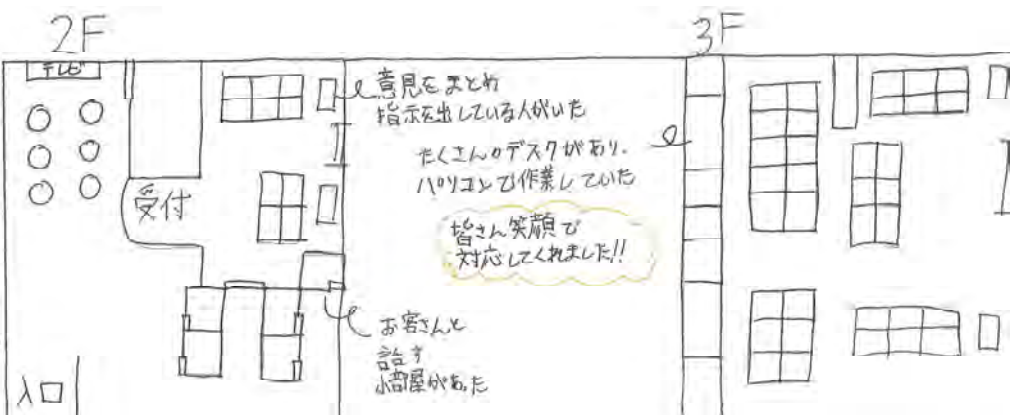 2F
テレビ
受付
入口
意見をまとめ
指示を出している人がいた
たくさんのデスクがあり、
パソコンで作業していた
皆さん笑顔で
対応してくれました!!
お客さんと
話す
小部屋があった
3F